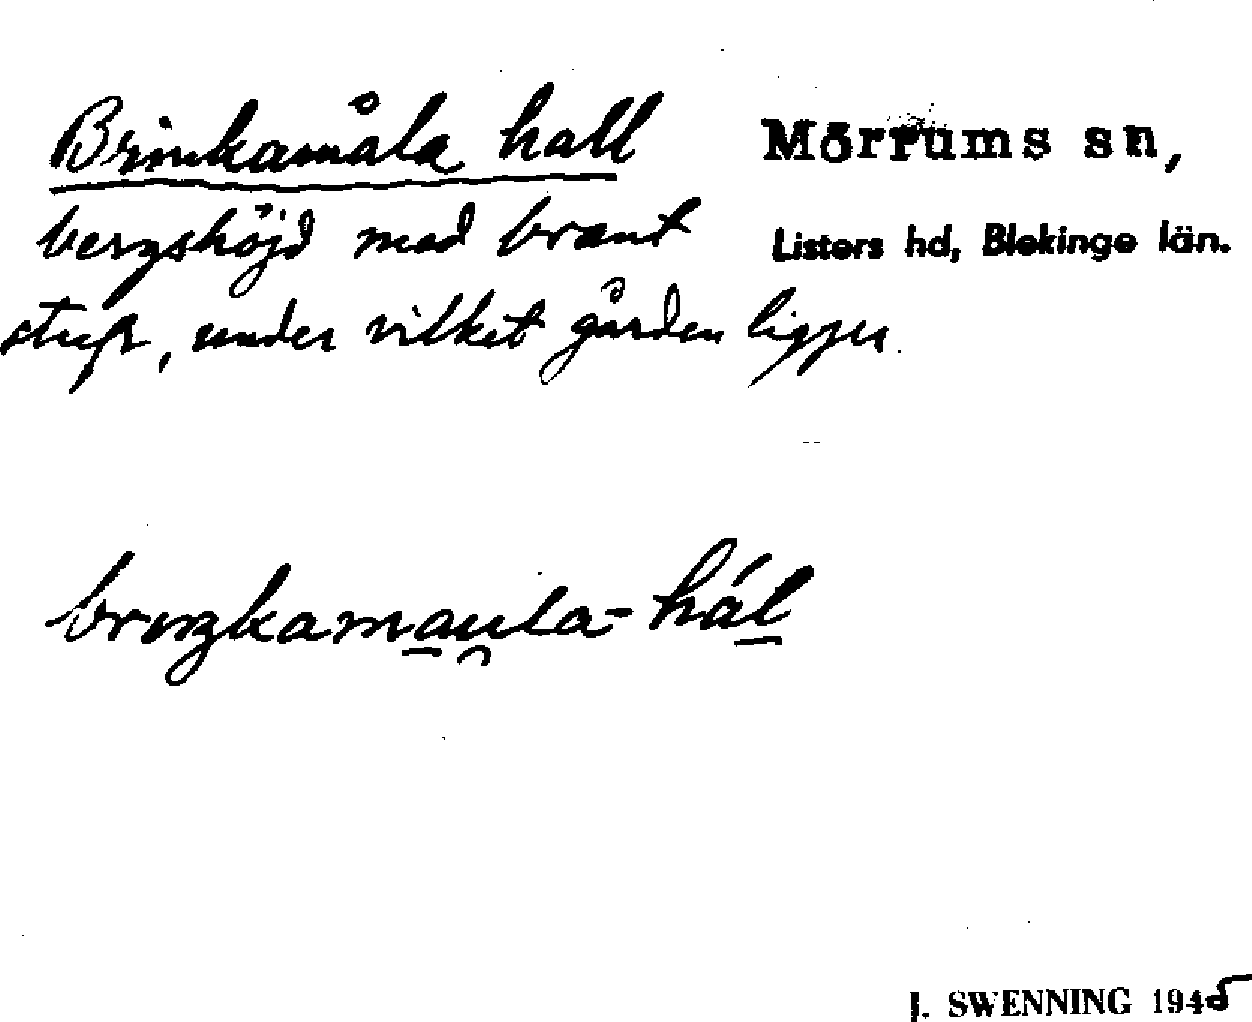 Brinkamåla hall
Mörrums sn,
bergshöjd med brant
Listers hd, Blekinge län.
stup, under vilket gården ligger.
J. SWENNING 1945